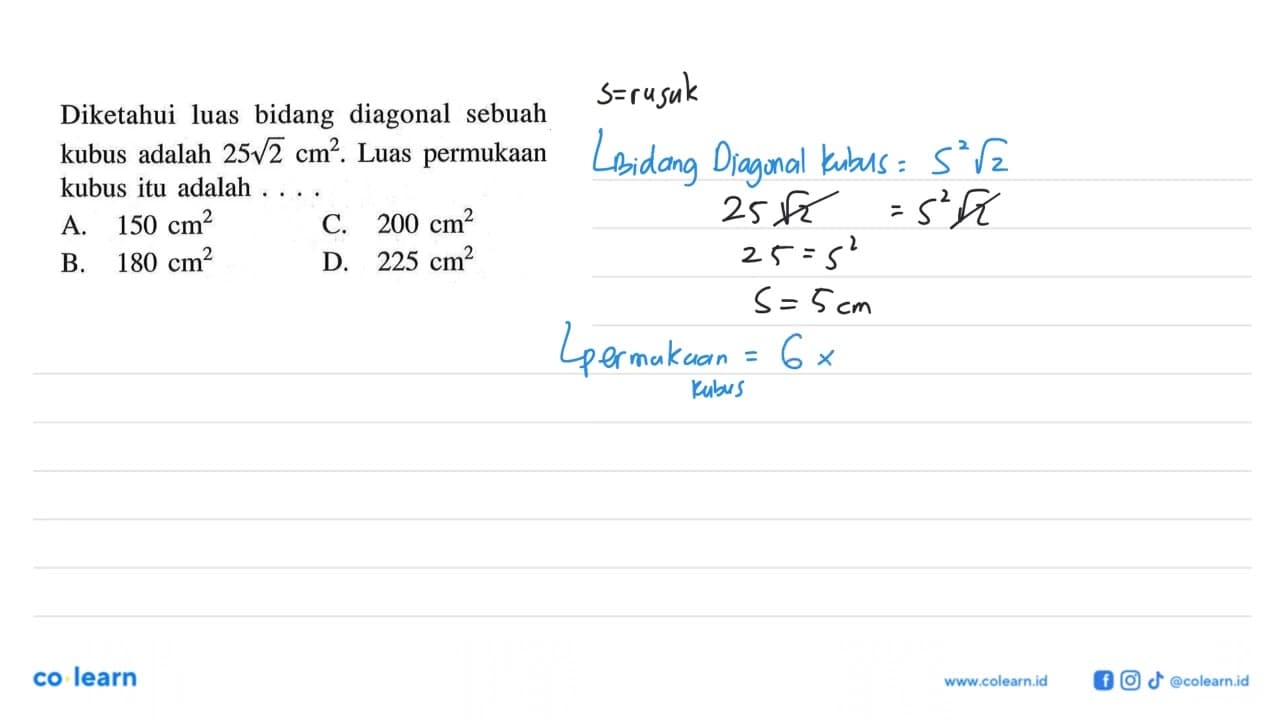 Diketahui luas bidang diagonal sebuah
kubus adalah 25√2 cm². Luas permukaan
kubus itu adalah . . . .
A. 150 cm² C. 200 cm²
B. 180 cm² D. 225 cm²
s=rusuk
LBidang Diagonal kubus = s²√2
25√2 = s²√2
25 = s²
s = 5 cm
Lpermukaan = 6 ×
kubus
co learn
www.colearn.id @colearn.id